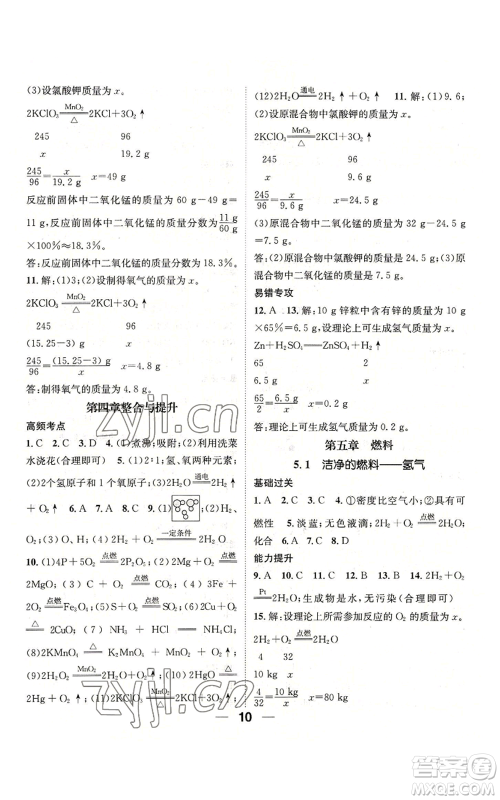 (3)设氯酸钾质量为 x。
2KClO₃ MnO₂ △ 2KCl+3O₂↑
245 96
x 19.2 g
245/96 = x/19.2 g x=49 g
反应前固体中二氧化锰的质量为 60 g-49 g=
11 g,反应前固体中二氧化锰的质量分数为 11 g/60 g
×100%≈18.3%。
答:反应前固体中二氧化锰的质量分数为 18.3%。
11. 解:(1)3;(2)设制得氧气的质量为 x。
2KClO₃ MnO₂ △ 2KCl+3O₂↑
245 96
(15.25-3) g x
245/96 = (15.25-3) g/x x=4.8 g
答:制得氧气的质量为 4.8 g。
第四章整合与提升
高频考点
1. C 2. D 3. C 4. (1)漂洗;吸附;(2)利用洗菜
水浇花(合理即可) 5. (1)2∶1;氢、氧两种元素;
(2)2 个氢原子和 1 个氧原子;(3)2H₂O 通电 2H₂↑
+O₂↑ 6. D 7. C 8. D
9. (1)A;(2)B;(3)C;(4)2H₂+O₂ 一定条件 2H₂O
10. (1)4P+5O₂ 点燃 2P₂O₅ (2)2Mg+O₂ 点燃
2MgO (3)C+O₂ 点燃 CO₂ (4)3Fe+
2O₂ 点燃 Fe₃O₄ (5)S+O₂ 点燃 SO₂ (6)2Cu+O₂
△ 2CuO (7)NH₃+HCl=NH₄Cl
(8)2KMnO₄ △ K₂MnO₄+MnO₂+O₂↑
(9)2H₂O₂ MnO₂ 2H₂O+O₂↑ (10)2HgO △
2Hg+O₂↑ (11)2KClO₃ MnO₂ △ 2KCl+3O₂↑
(12)2H₂O 通电 2H₂↑+O₂↑ 11. 解:(1)9.6;
(2)设原混合物中氯酸钾的质量为 x。
2KClO₃ MnO₂ △ 2KCl+3O₂↑
245 96
x 9.6 g
245/96 = x/9.6 g x=24.5 g
(3)原混合物中二氧化锰的质量为 32 g-24.5 g
=7.5 g。
答:原混合物中氯酸钾的质量为 24.5 g,原混合物中二氧化锰的质量为 7.5 g。
易错专攻
12. A 13. 解:10 g 锌粒中含有锌的质量为 10 g
×65%=6.5 g,设理论上可生成氢气的质量为 x。
Zn+H₂SO₄=ZnSO₄+H₂↑
65 2
6.5 g x
65/2 = 6.5 g/x x=0.2 g
答:理论上可生成氢气的质量为 0.2 g。
第五章 燃料
5.1 洁净的燃料——氢气
基础过关
1. A 2. C 3. A 4. ①密度比空气小;②具有可
燃性 5. 淡蓝;无色液滴;放热 6. B 7. A 8. C
能力提升
9. A 10. C 11. C 12. B 13. B 14. 2H₂+O₂
Pt 2H₂O;生成物是水,无污染(合理即可)
15. 解:设理论上所需参加反应的 O₂ 的质量为 x。
2H₂+O₂ 点燃 2H₂O
4 32
10 kg x
4/32 = 10 kg/x x=80 kg
10
zyjl.cn
作业精灵